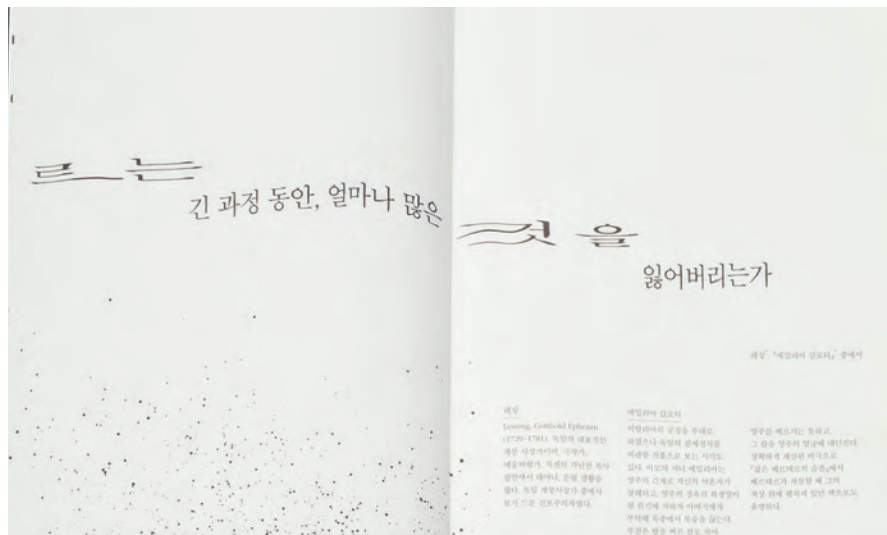 르는
긴 과정 동안, 얼마나 많은
것을
잃어버리는가
레싱 『에밀리아 갈로티』 중에서
레싱
Lessing, Gotthold Ephraim
(1729~1781). 독일의 대표적인
계몽 사상가이며, 극작가,
예술비평가. 작센의 가난한 목사
집안에서 태어나, 문필 생활을
했다. 독일 계몽사상가 중에서
보기 드문 진보주의자였다.
에밀리아 갈로티
이탈리아의 궁정을 무대로
하였으나 독일의 전제정치를
비판한 작품으로 보는 시각도
있다. 미모의 처녀 에밀리아는
영주의 간계로 자신의 약혼자가
살해되고, 영주의 정욕의 희생양이
될 위기에 처하자 아버지에게
부탁해 죽음을 끊는다.
부친은 딸을 찌른 칼로 차마
영주를 찌르지는 못하고,
그 칼을 영주의 얼굴에 내던진다.
정확하게 계산된 비극으로
『젊은 베르테르의 슬픔』에서
베르테르가 자살할 때 그의
책상 위에 펼쳐져 있던 책으로도
유명하다.